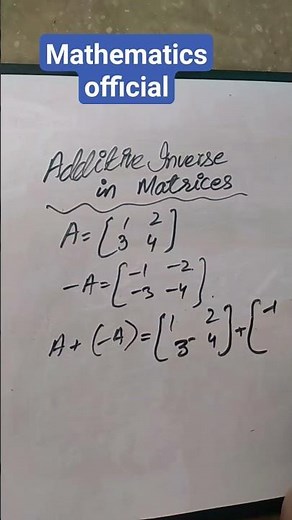 Mathematics
official
Additive Inverse
in Matrices
A = [1 2
3 4]
-A = [-1 -2
-3 -4].
A + (-A) = [1 2
3 4] + [-1